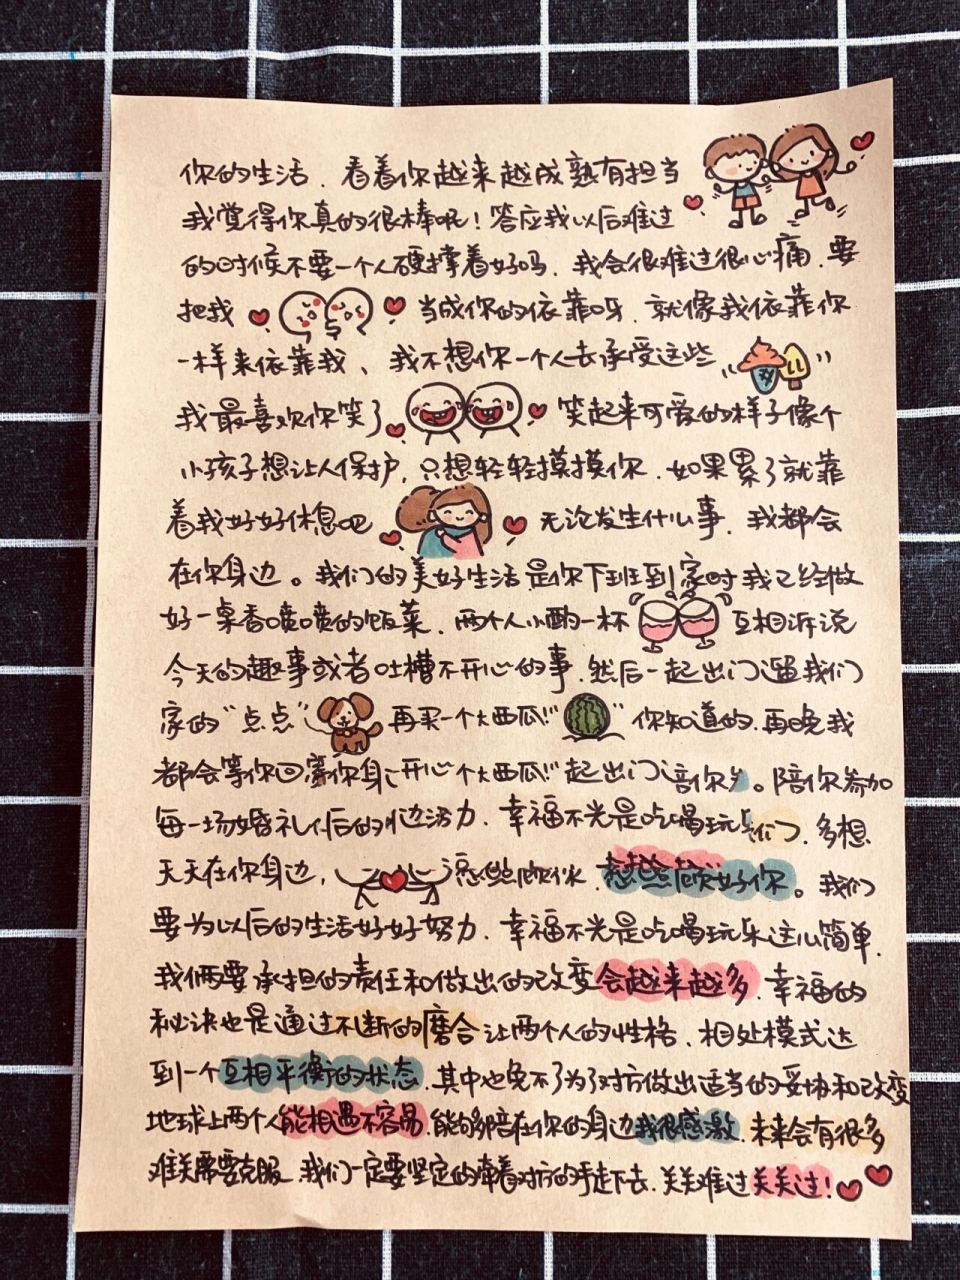 你的生活、看着你越来越成熟有担当
我觉得你真的很棒呢！答应我以后难过
的时候不要一个人硬撑着好吗、我会很难过很心痛、要
把我 当成你的依靠呀、就像我依靠你
一样来依靠我、我不想你一个人去承受这些
我最喜欢你笑了 笑起来可爱的样子像个
小孩子想让人保护，只想轻轻摸摸你、如果累了就靠
着我好好休息吧 无论发生什么事、我都会
在你身边。我们的美好生活是你下班到家时我已经做
好一桌香喷喷的饭菜、两个人小酌一杯 互相诉说
今天的趣事或者吐槽不开心的事、然后一起出门遛我们
家的“点点” 再买一个大西瓜!! 你知道的、再晚我
都会等你回 你身 开心个大西瓜!! 起出门 你 。陪你参加
每一场婚礼 后的 边 努力、幸福不光是吃喝玩 们、多想
天天在你身边， 好你。我们
要为以后的生活好好努力、幸福不光是吃喝玩乐这么简单
我们俩要承担的责任和做出的改变会越来越多、幸福的
秘诀也是通过不断的磨合让两个人的性格、相处模式达
到一个互相平衡的状态、其中也免不了为了对方做出适当的妥协和改变
地球上两个人能相遇不容易、能够陪在你的身边我很感激、未来会有很多
难关需要克服、我们一定要坚定的牵着对方的手走下去、关关难过关关过！